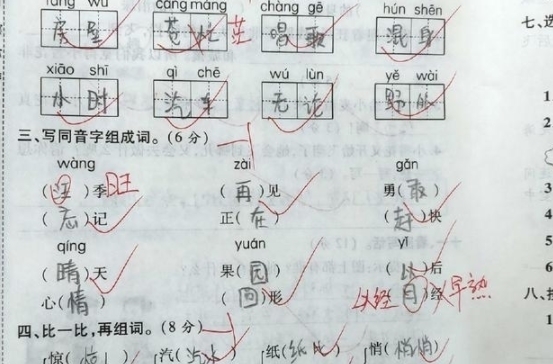 fáng wū cāng máng chàng gē hún shēn
苍忙 茫 唱歌 混身
xiāo shī qì chē wú lùn yě wài
小时 汽车 无论 野外
三、写同音字组成词。(6 分)
wàng zài gǎn
( )季 旺 (再)见 勇(敢)
(忘)记 正(在) (赶)快
qíng yuán yǐ
(晴)天 果(园) (以)后
心(情) (圆)形 以经 (自)经 早熟
四、比一比,再组词。(8 分)
惊( ) 汽(汽水) 纸(纸比) 悄(悄悄)
七、
1
2
3
4
5
6
八、
1